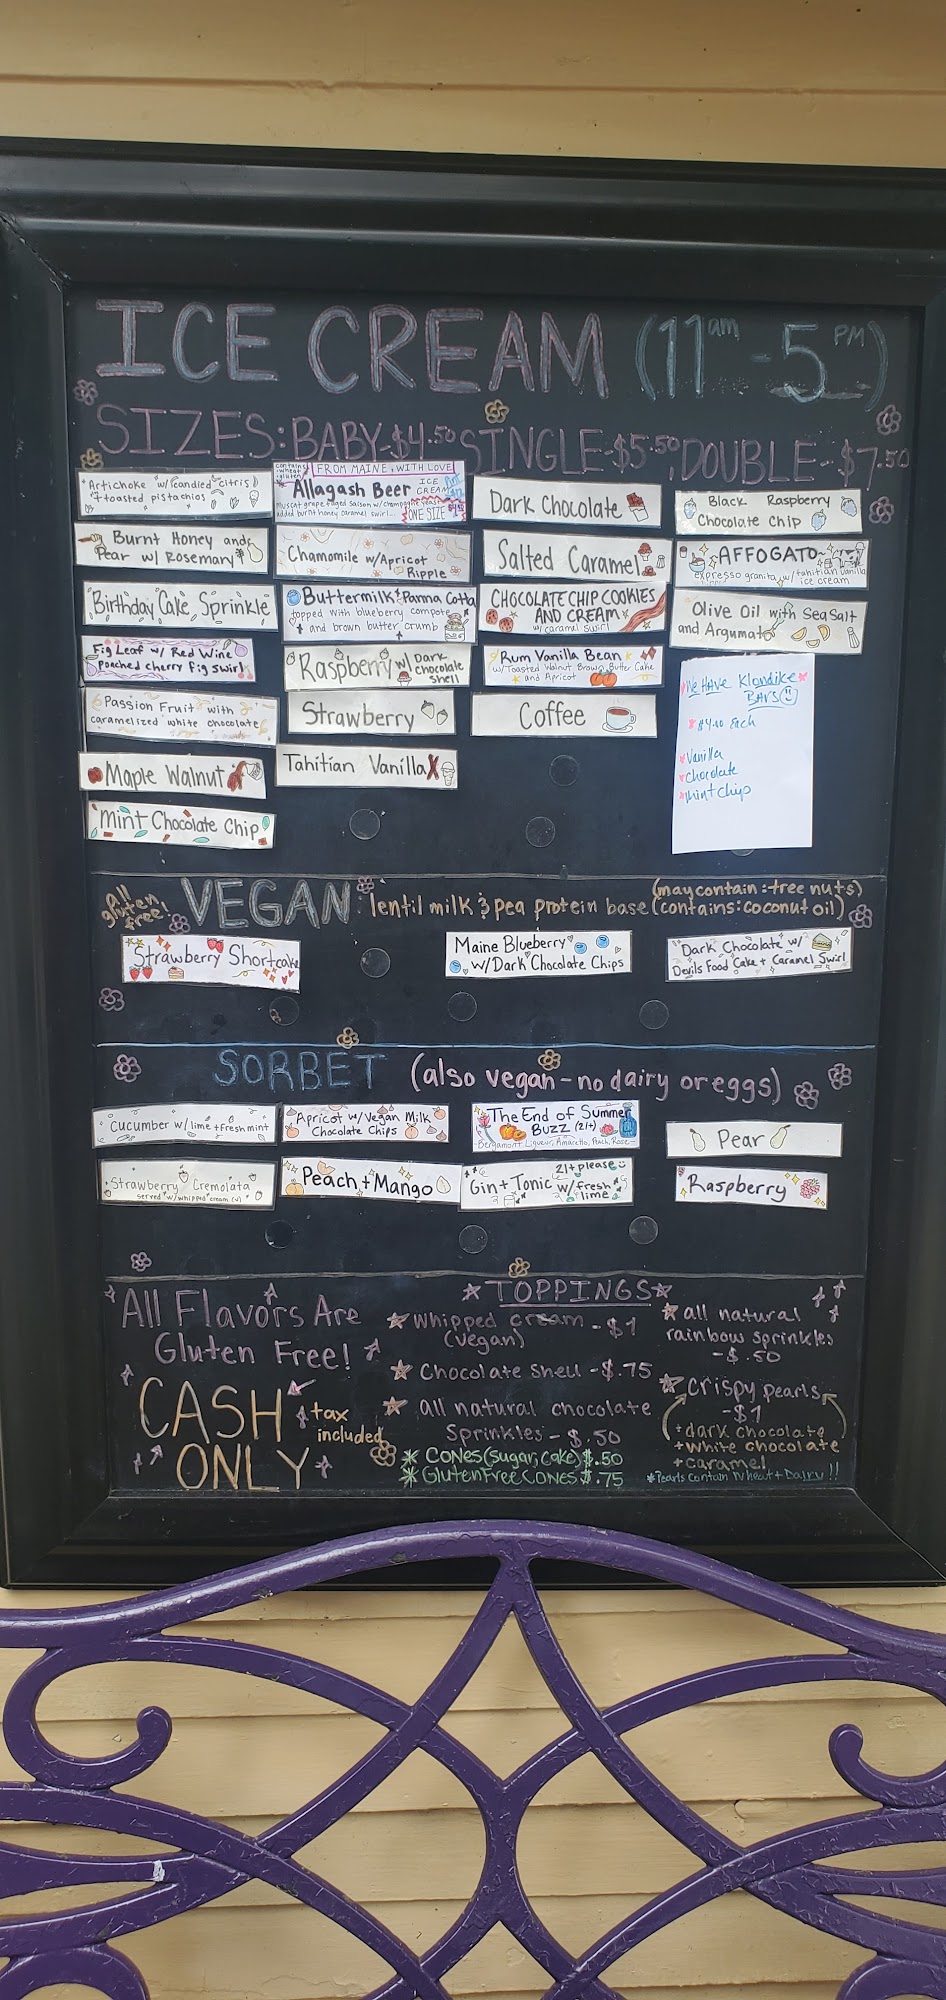 ICE CREAM (11am - 5PM)
SIZES: BABY-$4.50 SINGLE-$5.50, DOUBLE-$7.50
Artichoke w/candied citris
+ toasted pistachios
Burnt Honey and
Pear w/ Rosemary
Birthday Cake Sprinkle
Fig Leaf w/ Red Wine
poached cherry fig swirl
Passion Fruit with
caramelized white chocolate
Maple Walnut
Mint Chocolate Chip
contains
wheat
gluten
FROM MAINE, WITH LOVE
Allagash Beer ICE
CREAM
muscat grape aged saison w/ champagne yeast
added burnt honey caramel swirl...
ONE SIZE
Chamomile w/Apricot
Ripple
Buttermilk Panna Cotta
topped with blueberry compote
and brown butter crumb
Raspberry w/ Dark
chocolate
shell
Strawberry
Tahitian Vanilla
Dark Chocolate
Salted Caramel
CHOCOLATE CHIP COOKIES
AND CREAM
w/ caramel swirl
Rum Vanilla Bean
w/Toasted Walnut Brown Butter Cake
and Apricot
Coffee
Black Raspberry
Chocolate Chip
AFFOGATO
expresso granita w/ tahitian vanilla
ice cream
Olive Oil with Sea Salt
and Argumato
We Have Klondike
BARS
$4.00 Each
Vanilla
chocolate
mint chip
all
gluten
free!
VEGAN: lentil milk & pea protein base
(may contain: tree nuts)
(contains: coconut oil)
Strawberry Shortcake
Maine Blueberry
w/Dark Chocolate Chips
Dark Chocolate w/
Devils Food Cake + Caramel Swirl
SORBET (also vegan-no dairy or eggs)
Cucumber w/lime + fresh mint
Apricot w/Vegan Milk
Chocolate Chips
The End of Summer
BUZZ (21+)
-Bergamont Liqueur, Amaretto, Peach, Rose-
Pear
Strawberry Cremolata
served w/whipped cream (v)
Peach + Mango
21+ please
Gin + Tonic w/fresh
lime
Raspberry
All Flavors Are
Gluten Free!
CASH
ONLY
tax
included
TOPPINGS
Whipped cream - $1
(vegan)
Chocolate Shell - $.75
all natural chocolate
Sprinkles - $.50
CONES (sugar, cake) $.50
Gluten Free CONES $.75
all natural
rainbow sprinkles
- $.50
Crispy pearls
- $1
+ dark chocolate
+ white chocolate
+ caramel
*Pearls contain Wheat + Dairy!!